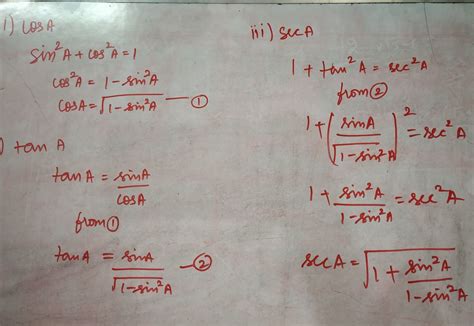 i) cosA
sin²A + cos²A = 1
cos²A = 1 - sin²A
cosA = √(1 - sin²A) — ①
) tan A
tanA = sinA / cosA
from ①
tanA = sinA / √(1 - sin²A) — ②
iii) secA
1 + tan²A = sec²A
from ②
1 + (sinA / √(1 - sin²A))² = sec²A
1 + sin²A / (1 - sin²A) = sec²A
secA = √(1 + sin²A / (1 - sin²A))